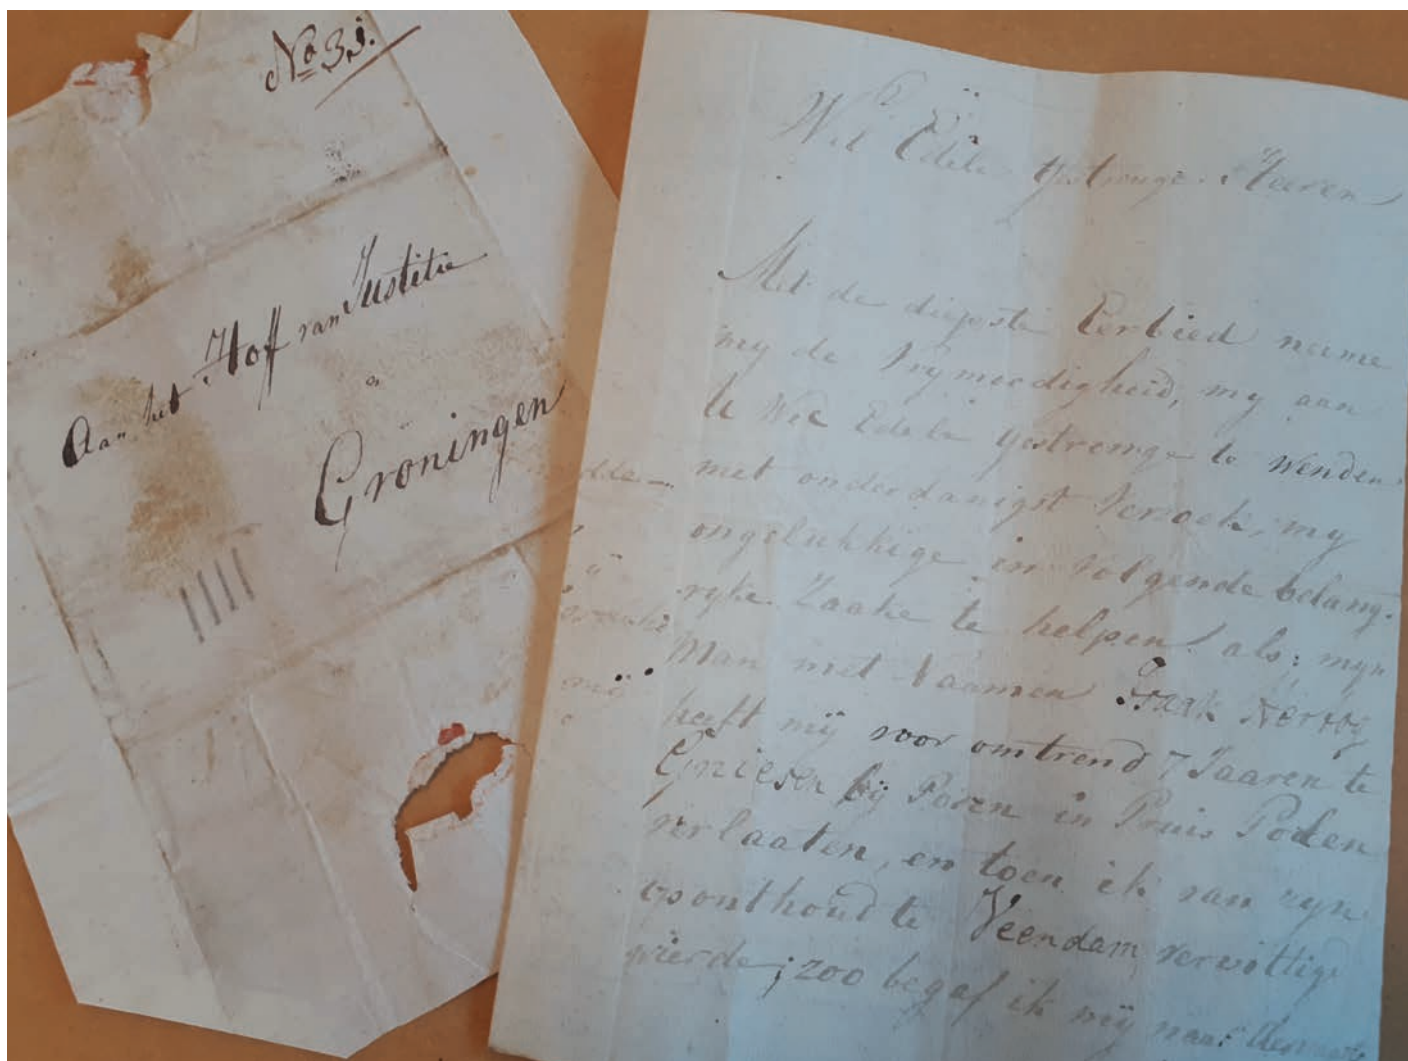 No 31.
Aan het Hoff van Justitie
a
Groningen
Wel Edele Gestrenge Heeren
Met de diepste Eerbied neeme
my de Vrymoedigheid, my aan
U Wel Edele Gestrenge te wenden
met onderdanigst Verzoek, my
ongelukkige in volgende belang-
ryke Zaake te helpen, als: myn
Man met Naamen Isaak Hertog
heeft mÿ voor omtrend 7 Jaaren te
Gniesen bÿ Posen in Pruis Poolen
verlaaten, en toen ik van zyn
oponthoud te Veendam verwittigd
wierde; zoo begaf ik mÿ naar